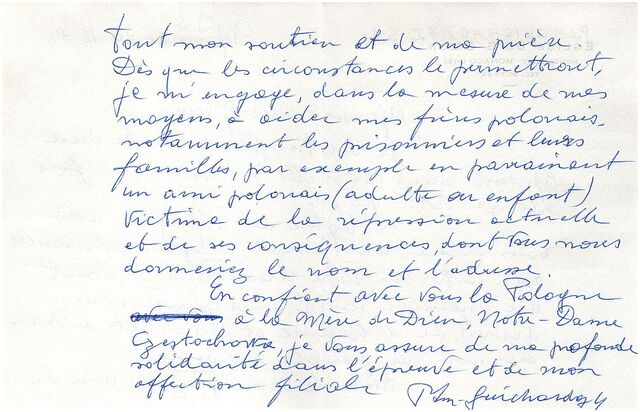 tout mon soutien et de ma prière
Dès que les circonstances le permettront,
je m'engage, dans la mesure de mes
moyens, à aider mes frères polonais,
notamment les prisonniers et leurs
familles, par exemple en parrainant
un ami polonais (adulte ou enfant)
victime de la répression actuelle
et de ses conséquences, dont vous nous
donneriez le nom et l'adresse.
En confiant avec vous la Pologne
à la Mère de Dieu, Notre-Dame
Częstochowa, je vous assure de ma profonde
solidarité dans l'épreuve et de mon
affection filiale